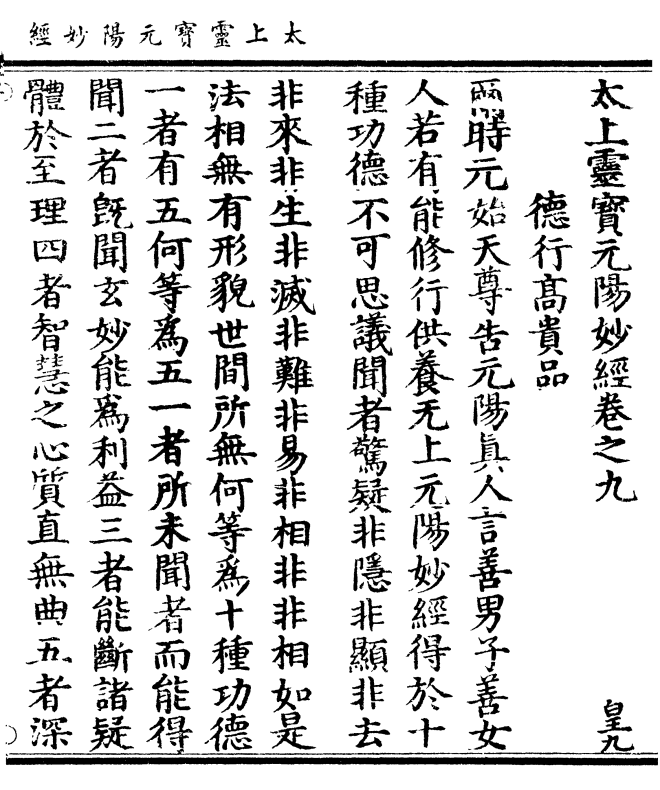 太上靈寶元陽妙經
太上靈寶元陽妙經卷之九
皇九
德行高貴品
爾時元始天尊告元陽真人言善男子善女
人若有能修行供養无上元陽妙經得於十
種功德不可思議聞者驚疑非隱非顯非去
非來非生非滅非難非易非相非非相如是
法相無有形貌世間所無何等爲十種功德
一者有五何等爲五一者所未聞者而能得
聞二者既聞玄妙能爲利益三者能斷諸疑
體於至理四者智慧之心質直無曲五者深